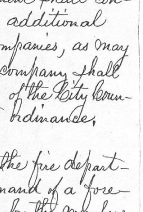 shall con-
additional
mpanies, as may
company shall
of the City Coun-
ordinance.
the fire depart-
mand of a fore-